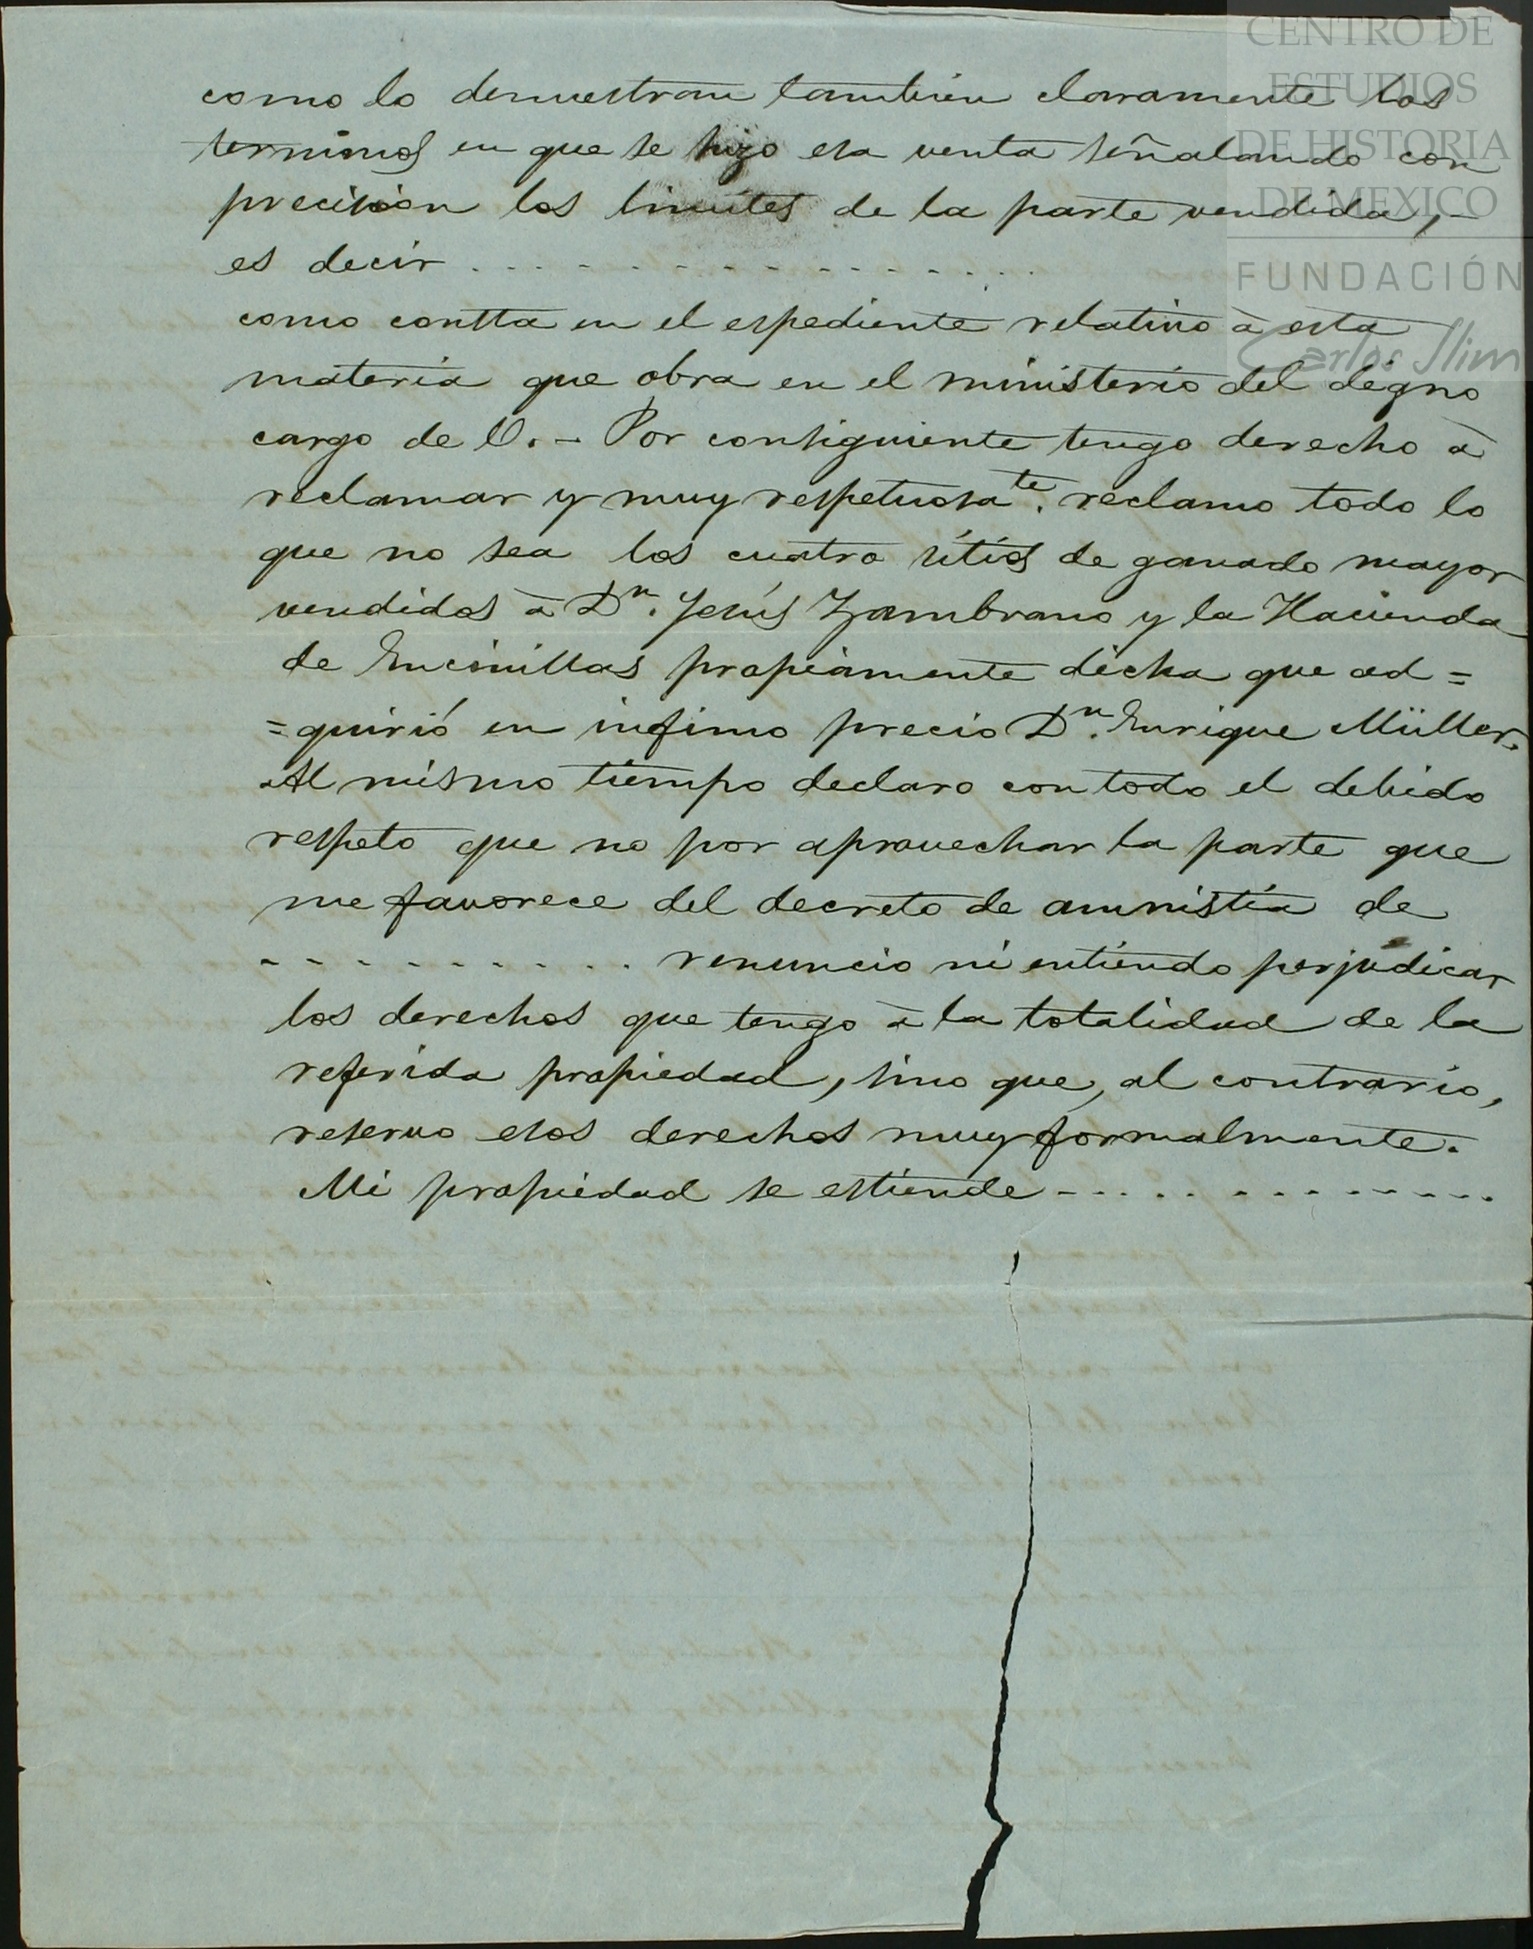 CENTRO DE
ESTUDIOS
DE HISTORIA
DE MEXICO
FUNDACIÓN
Carlos Slim
como lo demuestran tambien claramente los
terminos en que se hizo esa venta señalando con
precision los limites de la parte vendida, -
es decir . . . . . . . . . . . . . . . .
como consta en el espediente relativo à esta
materia que obra en el ministerio del digno
cargo de U. - Por consiguiente tengo derecho à
reclamar y muy respetuosate. reclamo todo lo
que no sea los cuatro sitios de ganado mayor
vendidos à Dn. Jesús Zambrano y la Hacienda
de Encinillas propiamente dicha que ad=
=quirió en infimo precio Dn. Enrique Müller.
Al mismo tiempo declaro con todo el debido
respeto que no por aprovechar la parte que
me favorece del decreto de amnistía de
- - - - - - - - - - . renuncio ni entiendo perjudicar
los derechos que tengo à la totalidad de la
referida propiedad, sino que, al contrario,
reservo esos derechos muy formalmente.
Mi propiedad se estiende - . . . . . . . . . . . . .